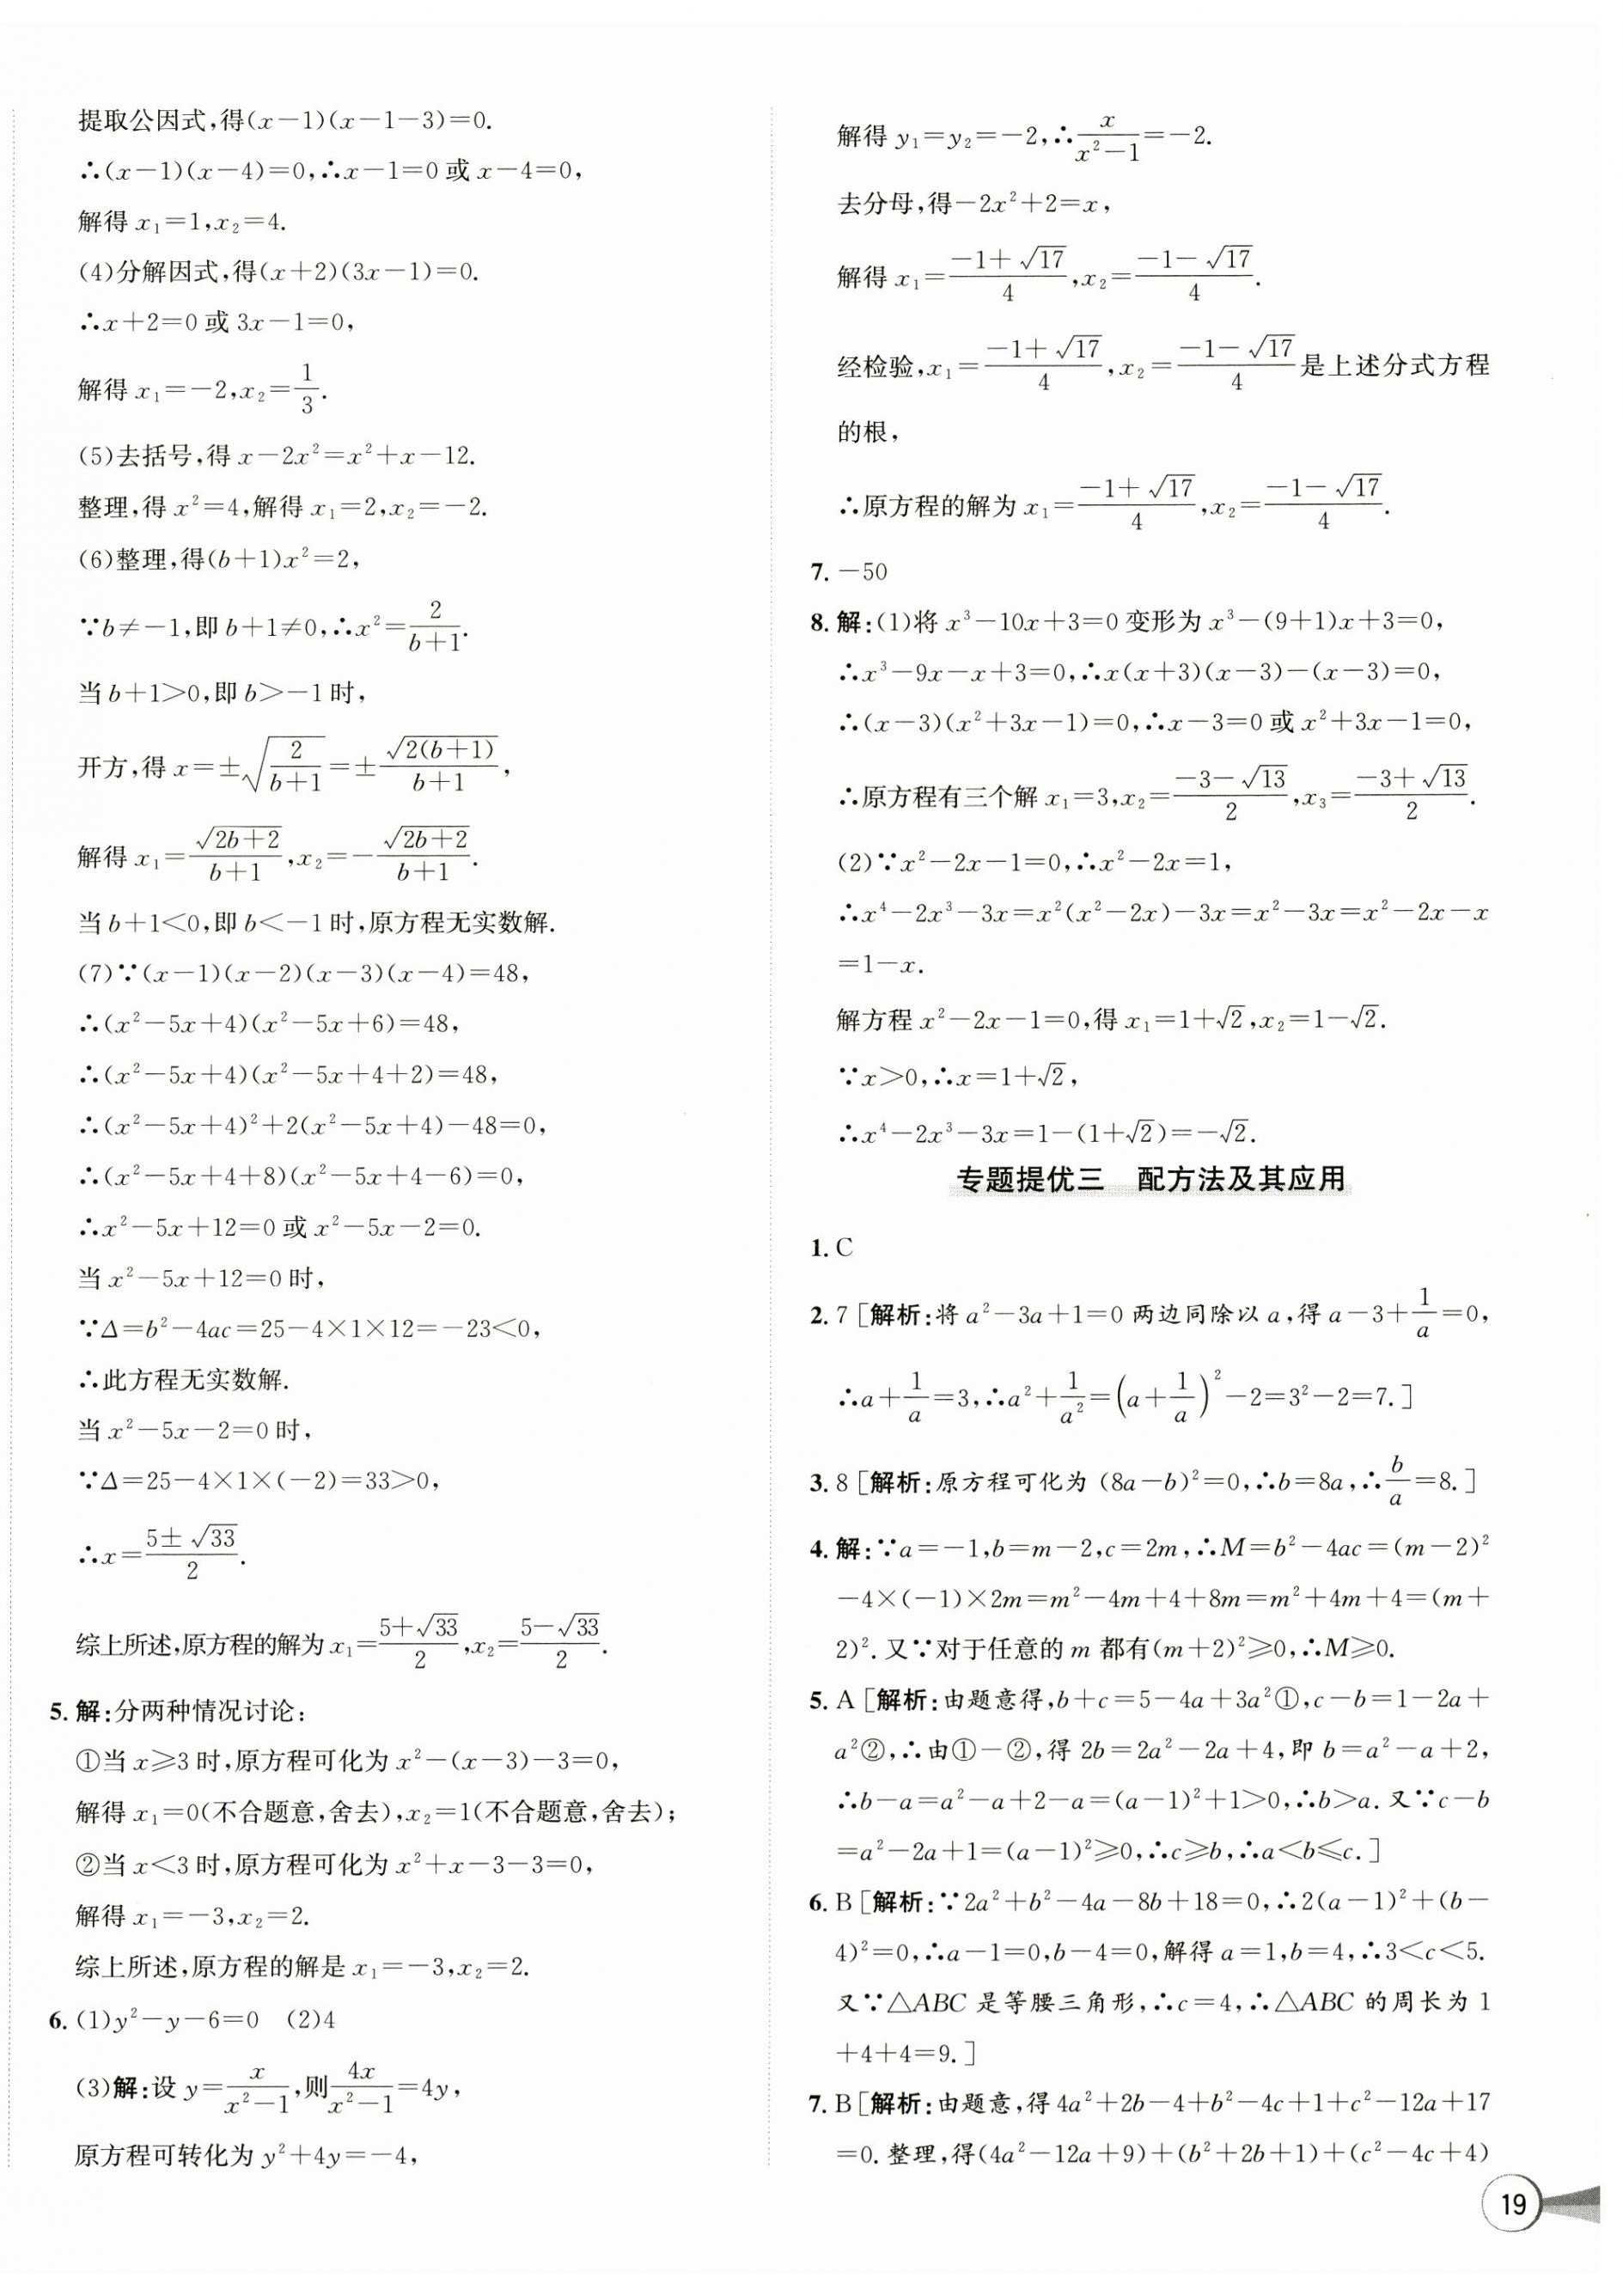 提取公因式,得(x-1)(x-1-3)=0.
∴(x-1)(x-4)=0,∴x-1=0或x-4=0,
解得x₁=1,x₂=4.
(4)分解因式,得(x+2)(3x-1)=0.
∴x+2=0或3x-1=0,
解得x₁=-2,x₂=1/3.
(5)去括号,得x-2x²=x²+x-12.
整理,得x²=4,解得x₁=2,x₂=-2.
(6)整理,得(b+1)x²=2,
∵b≠-1,即b+1≠0,∴x²=2/(b+1).
当b+1>0,即b>-1时,
开方,得x=±√(2/(b+1))=±√(2(b+1))/(b+1),
解得x₁=√(2b+2)/(b+1),x₂=-√(2b+2)/(b+1).
当b+1<0,即b<-1时,原方程无实数解.
(7)∵(x-1)(x-2)(x-3)(x-4)=48,
∴(x²-5x+4)(x²-5x+6)=48,
∴(x²-5x+4)(x²-5x+4+2)=48,
∴(x²-5x+4)²+2(x²-5x+4)-48=0,
∴(x²-5x+4+8)(x²-5x+4-6)=0,
∴x²-5x+12=0或x²-5x-2=0.
当x²-5x+12=0时,
∵Δ=b²-4ac=25-4×1×12=-23<0,
∴此方程无实数解.
当x²-5x-2=0时,
∵Δ=25-4×1×(-2)=33>0,
∴x=(5±√33)/2.
综上所述,原方程的解为x₁=(5+√33)/2,x₂=(5-√33)/2.
5. 解:分两种情况讨论:
①当x≥3时,原方程可化为x²-(x-3)-3=0,
解得x₁=0(不合题意,舍去),x₂=1(不合题意,舍去);
②当x<3时,原方程可化为x²+x-3-3=0,
解得x₁=-3,x₂=2.
综上所述,原方程的解是x₁=-3,x₂=2.
6. (1)y²-y-6=0 (2)4
(3)解:设y=x/(x²-1),则4x/(x²-1)=4y,
原方程可转化为y²+4y=-4,
解得y₁=y₂=-2,∴x/(x²-1)=-2.
去分母,得-2x²+2=x,
解得x₁=(-1+√17)/4,x₂=(-1-√17)/4.
经检验,x₁=(-1+√17)/4,x₂=(-1-√17)/4是上述分式方程
的根,
∴原方程的解为x₁=(-1+√17)/4,x₂=(-1-√17)/4.
7. -50
8. 解:(1)将x³-10x+3=0变形为x³-(9+1)x+3=0,
∴x³-9x-x+3=0,∴x(x+3)(x-3)-(x-3)=0,
∴(x-3)(x²+3x-1)=0,∴x-3=0或x²+3x-1=0,
∴原方程有三个解x₁=3,x₂=(-3-√13)/2,x₃=(-3+√13)/2.
(2)∵x²-2x-1=0,∴x²-2x=1,
∴x⁴-2x³-3x=x²(x²-2x)-3x=x²-3x=x²-2x-x
=1-x.
解方程x²-2x-1=0,得x₁=1+√2,x₂=1-√2.
∵x>0,∴x=1+√2,
∴x⁴-2x³-3x=1-(1+√2)=-√2.
专题提优三 配方法及其应用
1. C
2. 7[解析:将a²-3a+1=0两边同除以a,得a-3+1/a=0,
∴a+1/a=3,∴a²+1/a²=(a+1/a)²-2=3²-2=7.]
3. 8[解析:原方程可化为(8a-b)²=0,∴b=8a,∴b/a=8.]
4. 解:∵a=-1,b=m-2,c=2m,∴M=b²-4ac=(m-2)²
-4×(-1)×2m=m²-4m+4+8m=m²+4m+4=(m+
2)².又∵对于任意的m都有(m+2)²≥0,∴M≥0.
5. A[解析:由题意得,b+c=5-4a+3a²①,c-b=1-2a+
a²②,∴由①-②,得2b=2a²-2a+4,即b=a²-a+2,
∴b-a=a²-a+2-a=(a-1)²+1>0,∴b>a.又∵c-b
=a²-2a+1=(a-1)²≥0,∴c≥b,∴a<b≤c.]
6. B[解析:∵2a²+b²-4a-8b+18=0,∴2(a-1)²+(b-
4)²=0,∴a-1=0,b-4=0,解得a=1,b=4,∴3<c<5.
又∵△ABC是等腰三角形,∴c=4,∴△ABC的周长为1
+4+4=9.]
7. B[解析:由题意,得4a²+2b-4+b²-4c+1+c²-12a+17
=0.整理,得(4a²-12a+9)+(b²+2b+1)+(c²-4c+4)
19